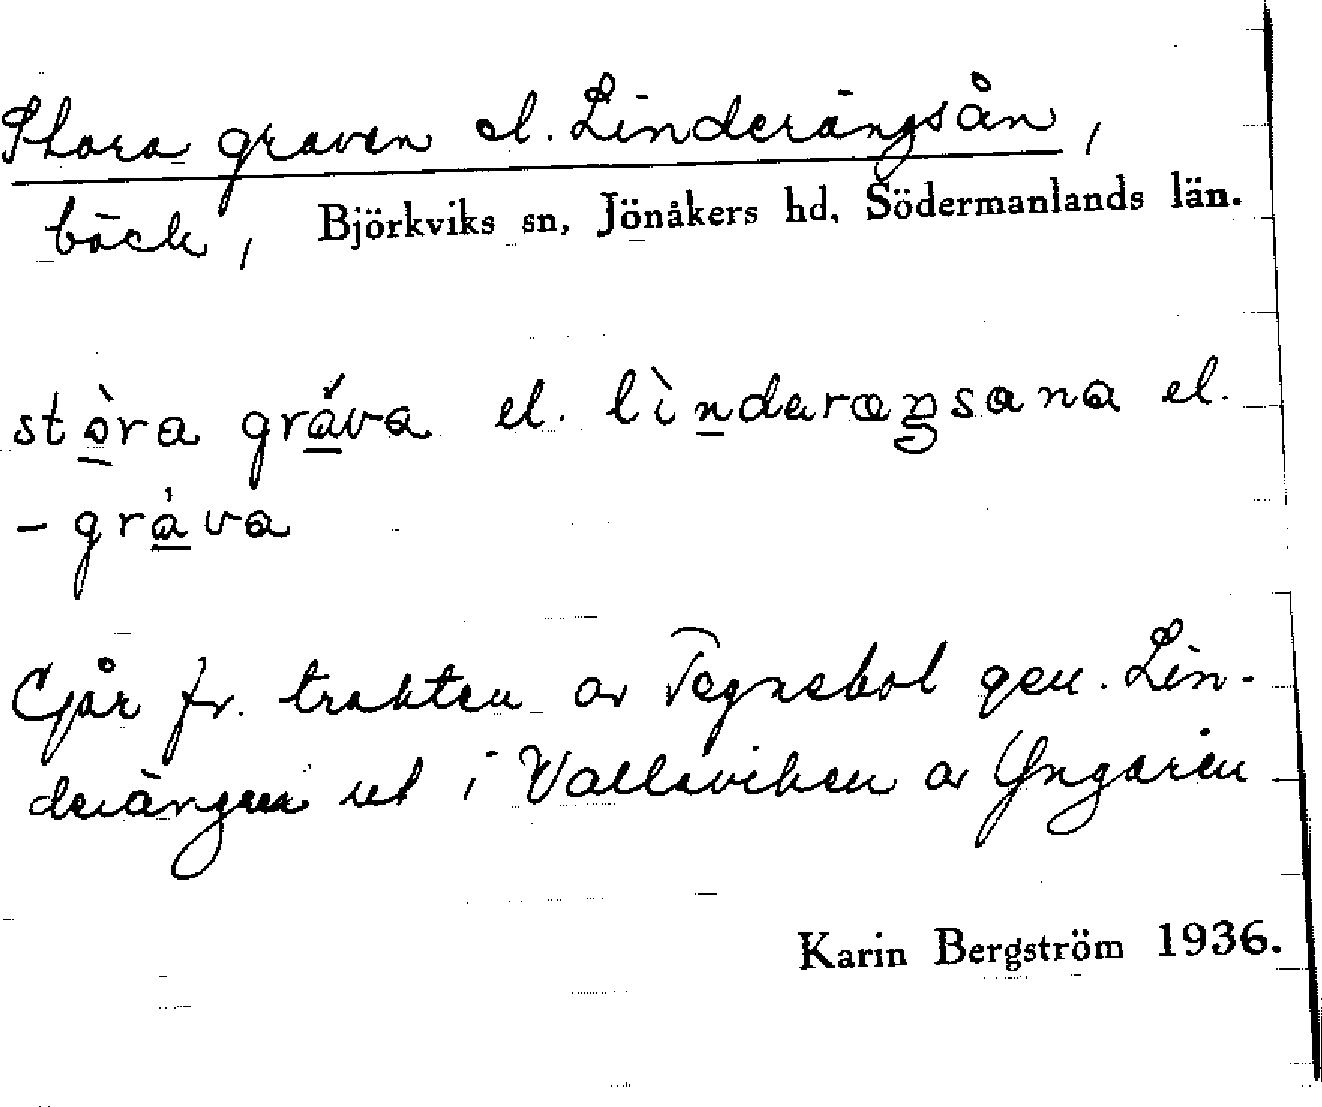 Stora graven el. Linderängsån,
bäck, Björkviks sn, Jönåkers hd, Södermanlands län.
stòra gràva el. lìnderæŋsana el.
- gràva
Går fr. trakten av Tegnebol gen. Lin-
derängen ut i Vallaviken av Yngaren
Karin Bergström 1936.